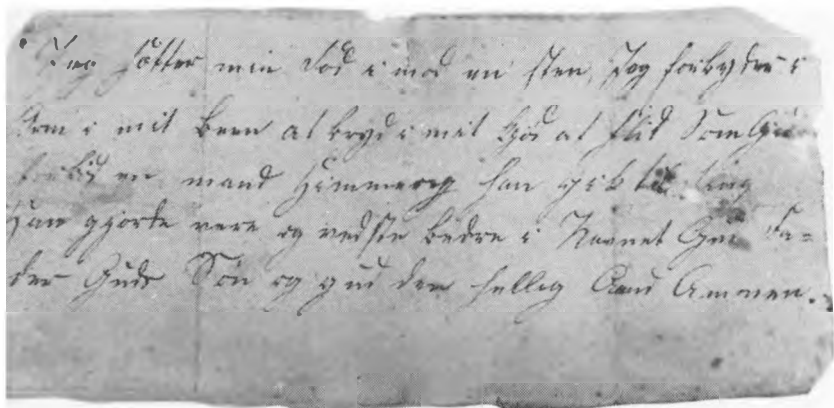 Jeg sötter min Fod i mod en sten, Jeg forbyder i
dom i mit been at bryd i mit kiöd at slid Som Gud
forbød en mand Himmerig han gik til ting
Han gjorte vere og vedste bedre i Navnet Gud Fa=
der Guds Sön og gud den hellig Aand Ammen.